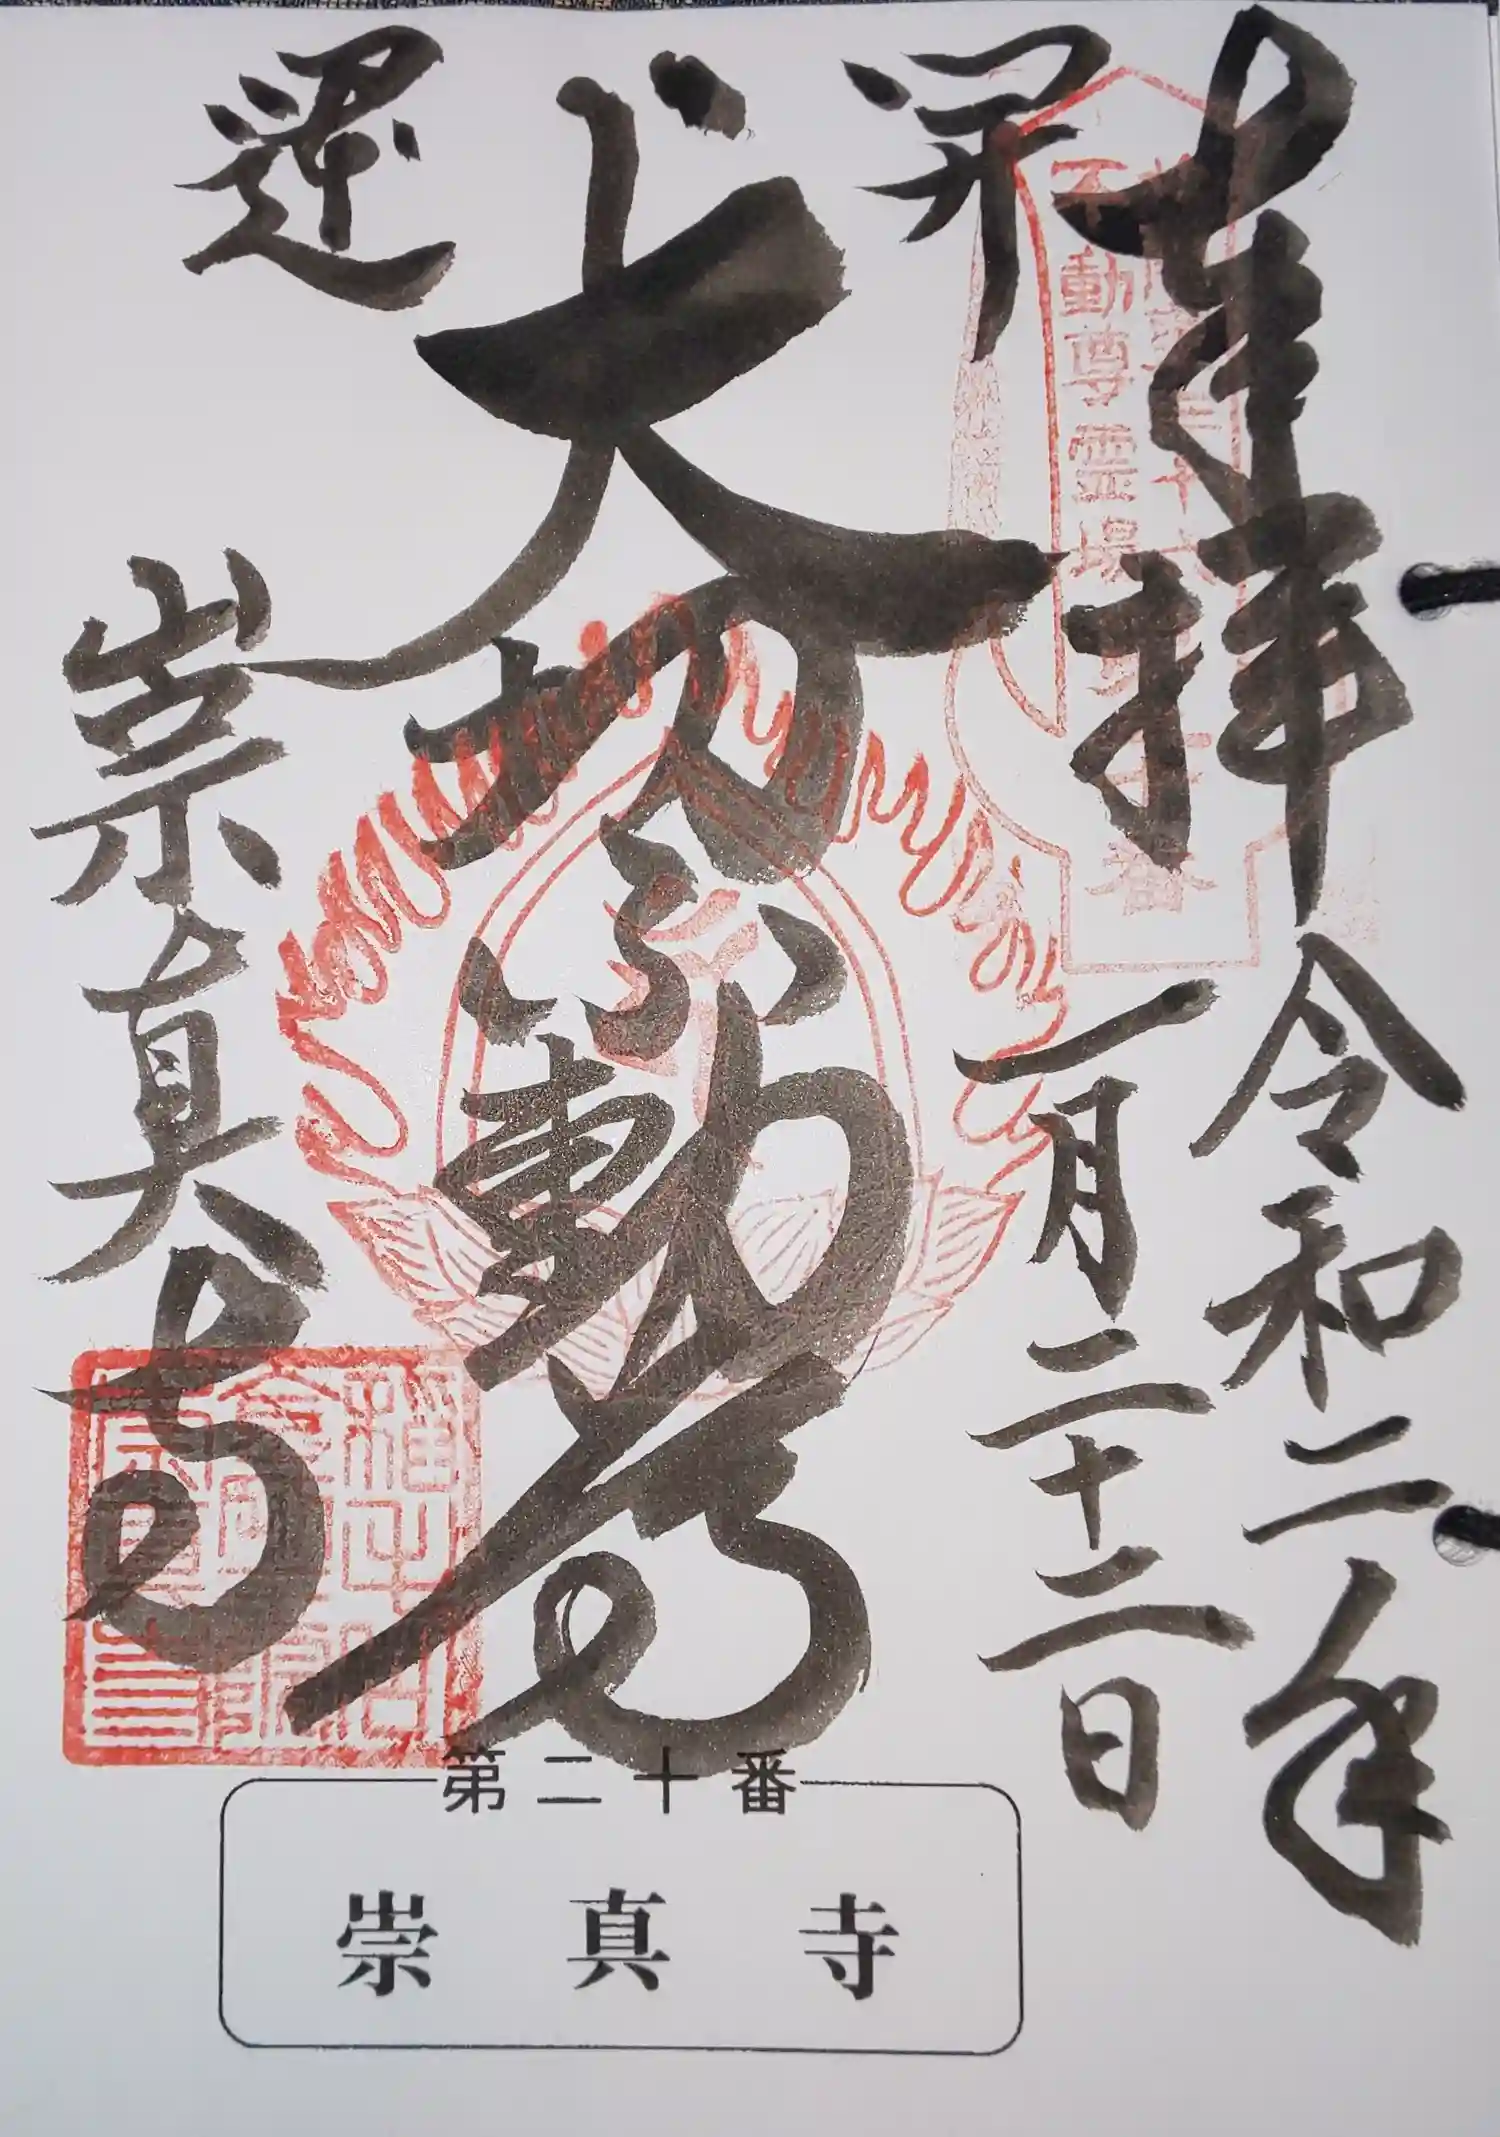 奉拝
令和二年
一月二十二日
開運
大切不動尊
崇真寺
不動尊霊場
番
第二十番
崇真寺